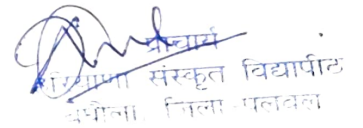 प्राचार्य
हरियाणा संस्कृत विद्यापीठ
बघौला, जिला पलवल